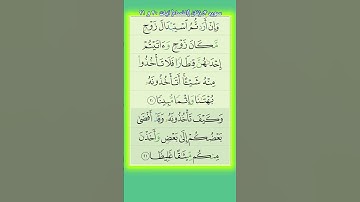 وَإِنْ أَرَدتُّمُ ٱسْتِبْدَالَ زَوْجٍ
مَّكَانَ زَوْجٍ وَءَاتَيْتُمْ
إِحْدَىٰهُنَّ قِنطَارًا فَلَا تَأْخُذُوا۟
مِنْهُ شَيْـًٔا أَتَأْخُذُونَهُۥ
بُهْتَـٰنًا وَإِثْمًا مُّبِينًا ٢٠
وَكَيْفَ تَأْخُذُونَهُۥ وَقَدْ أَفْضَىٰ
بَعْضُكُمْ إِلَىٰ بَعْضٍ وَأَخَذْنَ
مِنكُم مِّيثَـٰقًا غَلِيظًا ٢١